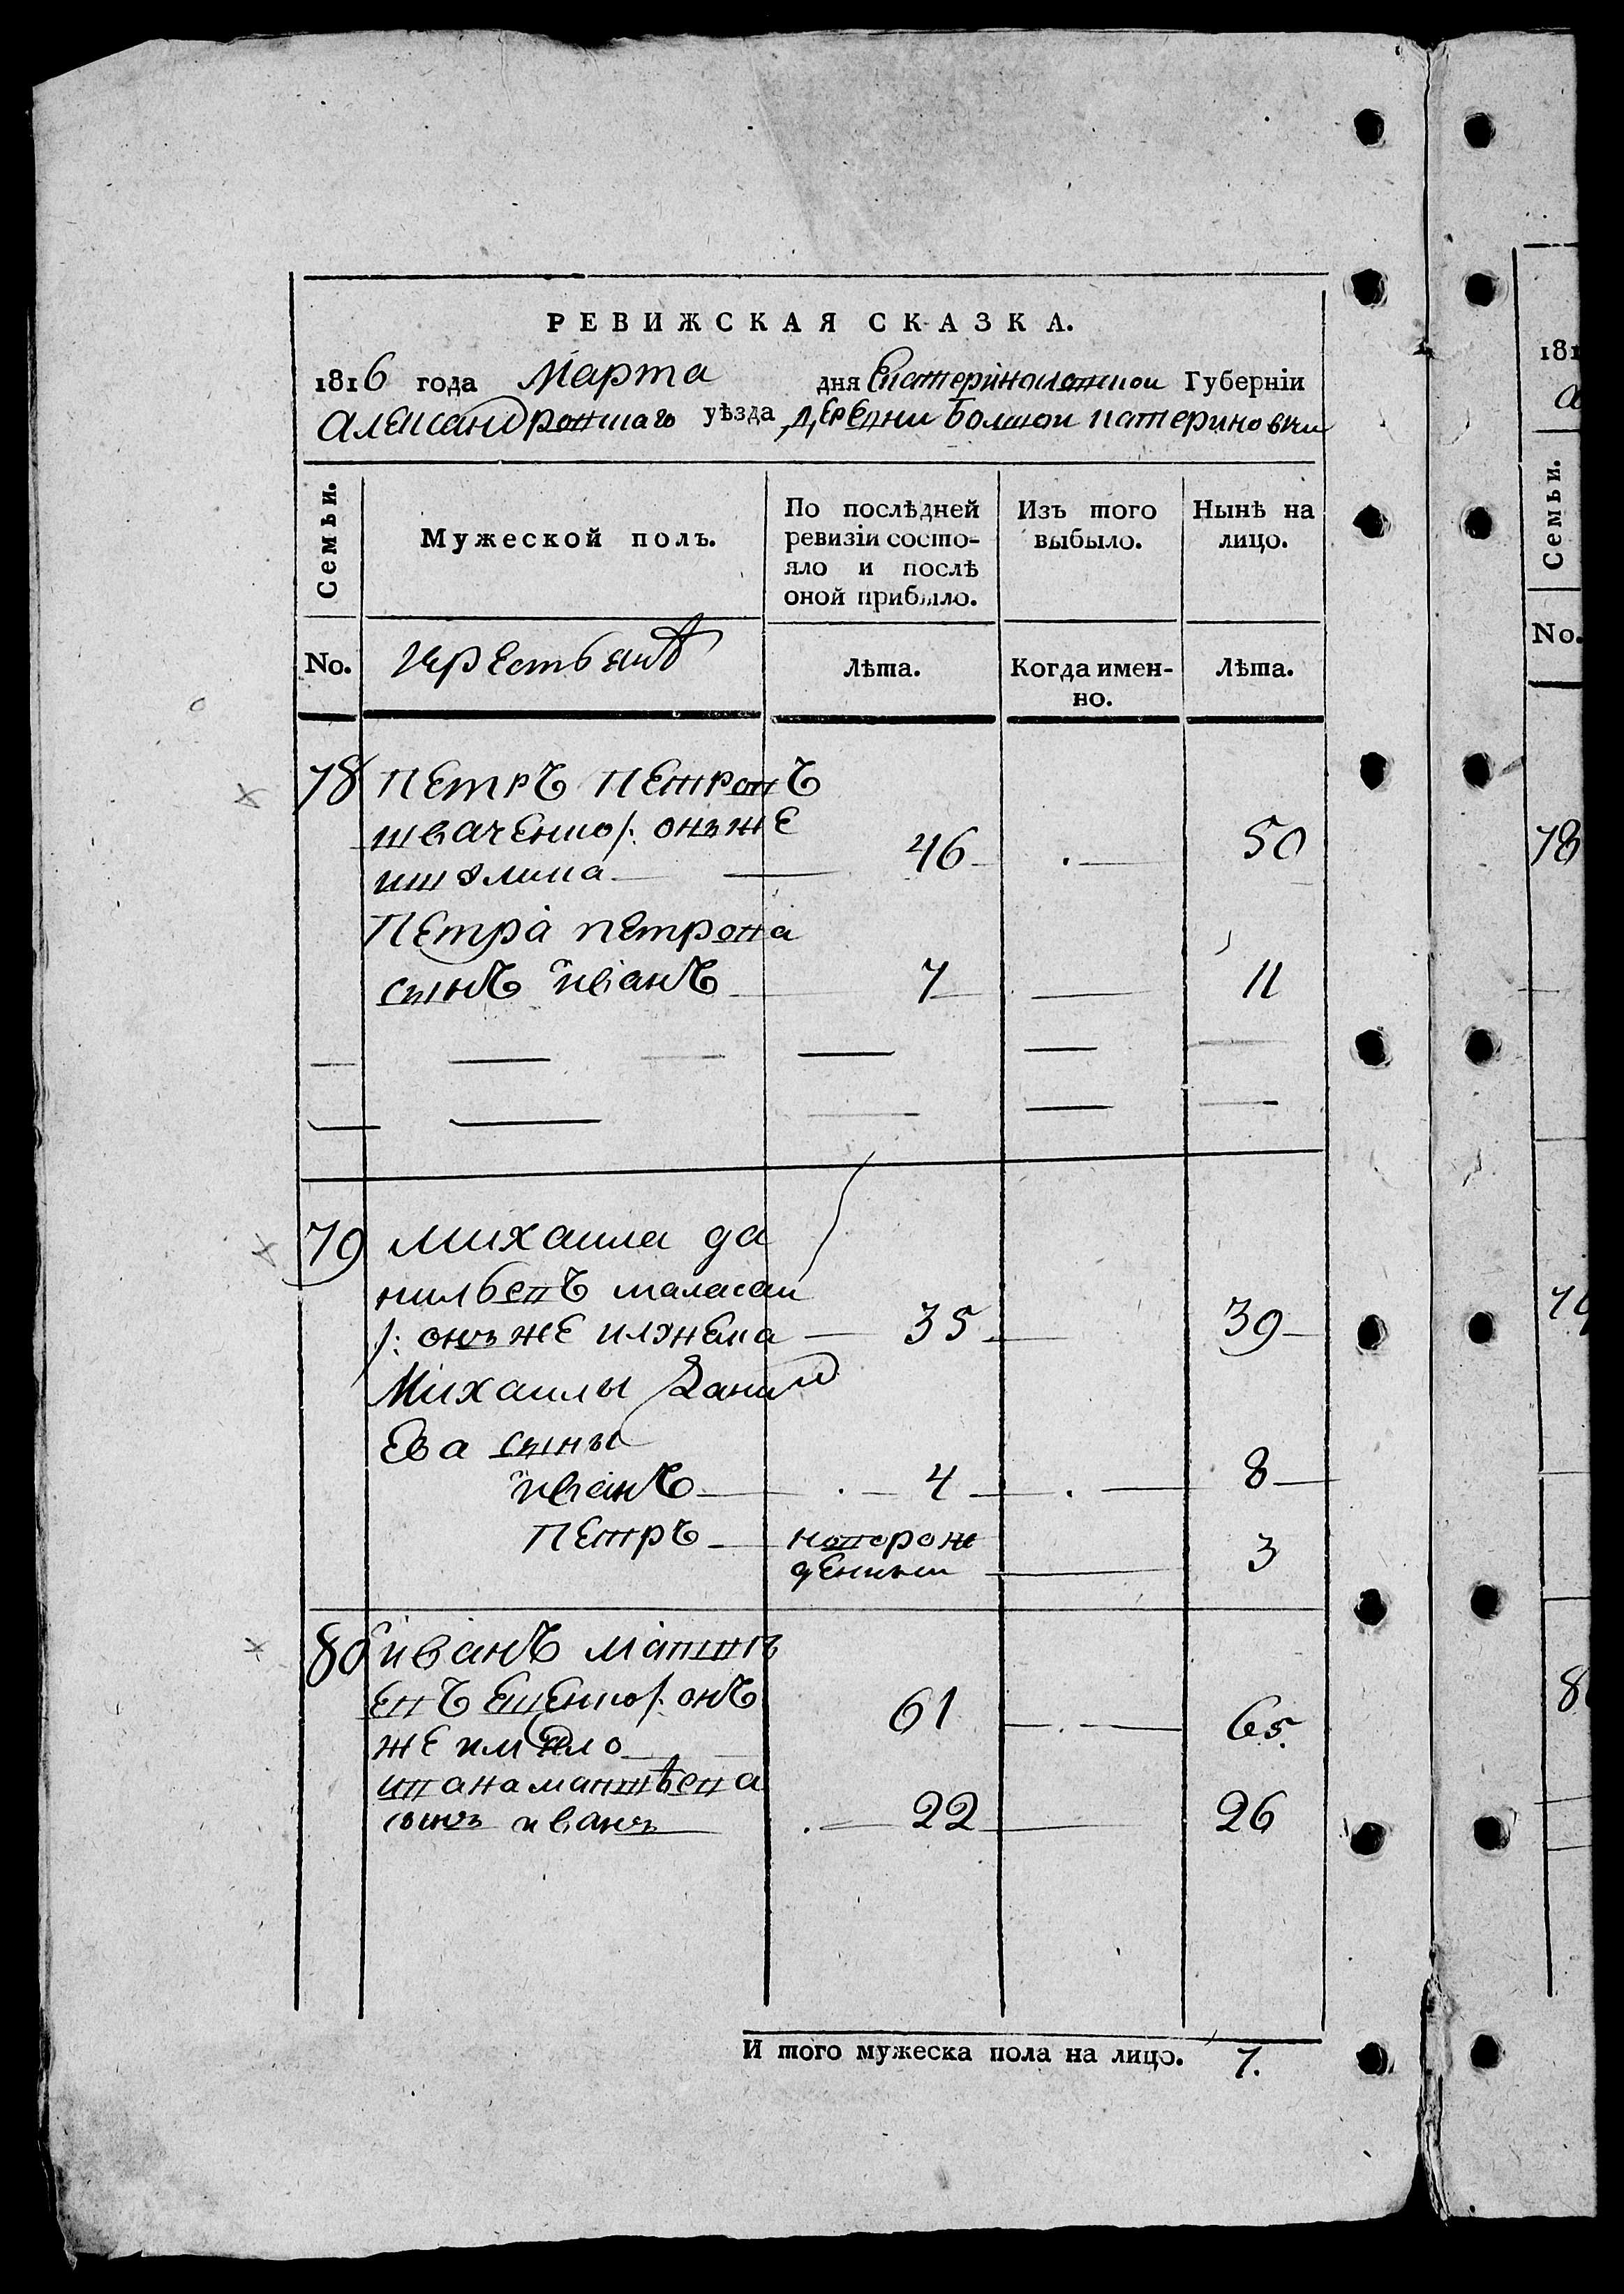 РЕВИЖСКАЯ СКАЗКА.
1816 года Марта дня Екатеринославской Губерніи
Александровскаго уѣзда деревни Болшои катериновки
Семьи. Мужеской полъ. По послѣдней ревизіи состо-яло и послѣ оной прибыло. Изъ того выбыло. Ныне на лицо.
No. крестьянѣ Лѣта. Когда имен-но. Лѣта.
78 Петръ Петровъ
ткаченко /: онъ же
46 50
Петра петрова
сынъ иванъ 7 11
79 Михаила да
нильевъ
/: онъ же 35 39
Михаилы Данил
Ева сыны
иванъ 4 8
Петръ новорож
денныи 3
80 иванъ матвѣ
евъ /: онъ
же 61 65.
ивана матвѣева
сынъ иванъ 22 26
И того мужеска пола на лицо. 7.
181
Семьи.
No.
78